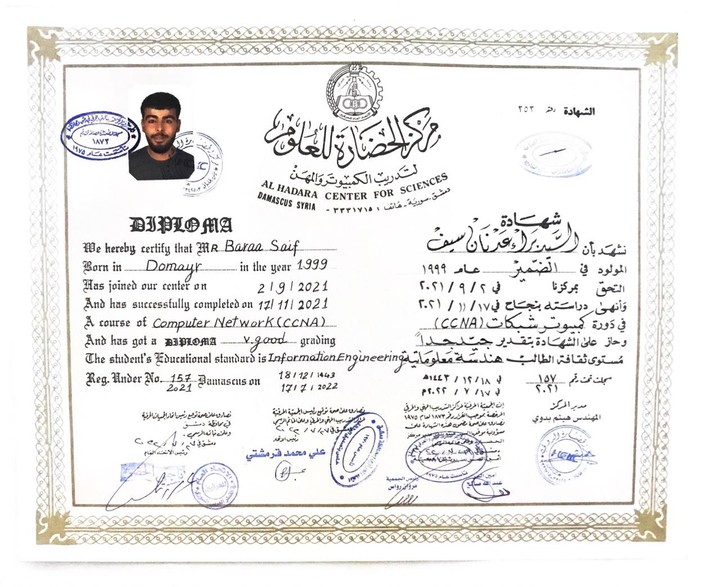 الشهادة رقم ٢٥٣
مركز الحضارة للعلوم
لتدريب الكمبيوتر والمهن
AL HADARA CENTER FOR SCIENCES
DAMASCUS SYRIA - دمشق.سورية.هاتف ٣٣٣١٧١٥١
١٨٧٣
تأسست عام ١٩٧٥
DIPLOMA
We hereby certify that MR Baraa Saif
Born in Domayr in the year 1999
Has joined our center on 2/9/2021
And has successfully completed on 17/11/2021
A course of Computer Network (CCNA)
And has got a DIPLOMA v.good grading
The student's Educational standard is Information Engineering
Reg. Under No. 157 Damascus on 18/12/1443
2021 17/7/2022
شهادة
نشهد بأن السيد براء عدنان سيف
المولود في الضمير عام ١٩٩٩
التحق بمركزنا في ٢/٩/٢٠٢١
وأنهى دراسته بنجاح في ١٧/١١/٢٠٢١
في دورة كمبيوتر شبكات (CCNA)
وحاز على الشهادة بتقدير جيد جداً
مستوى ثقافة الطالب هندسة معلوماتية
سجلت تحت رقم ١٥٧ في ١٨/١٢/١٤٤٣هـ
٢٠٢١ ١٧/٧/٢٠٢٢م
مدير المركز
المهندس هيثم بدوي
علي محمد قرمشتي
رئيس الجمعية
مروان رواس